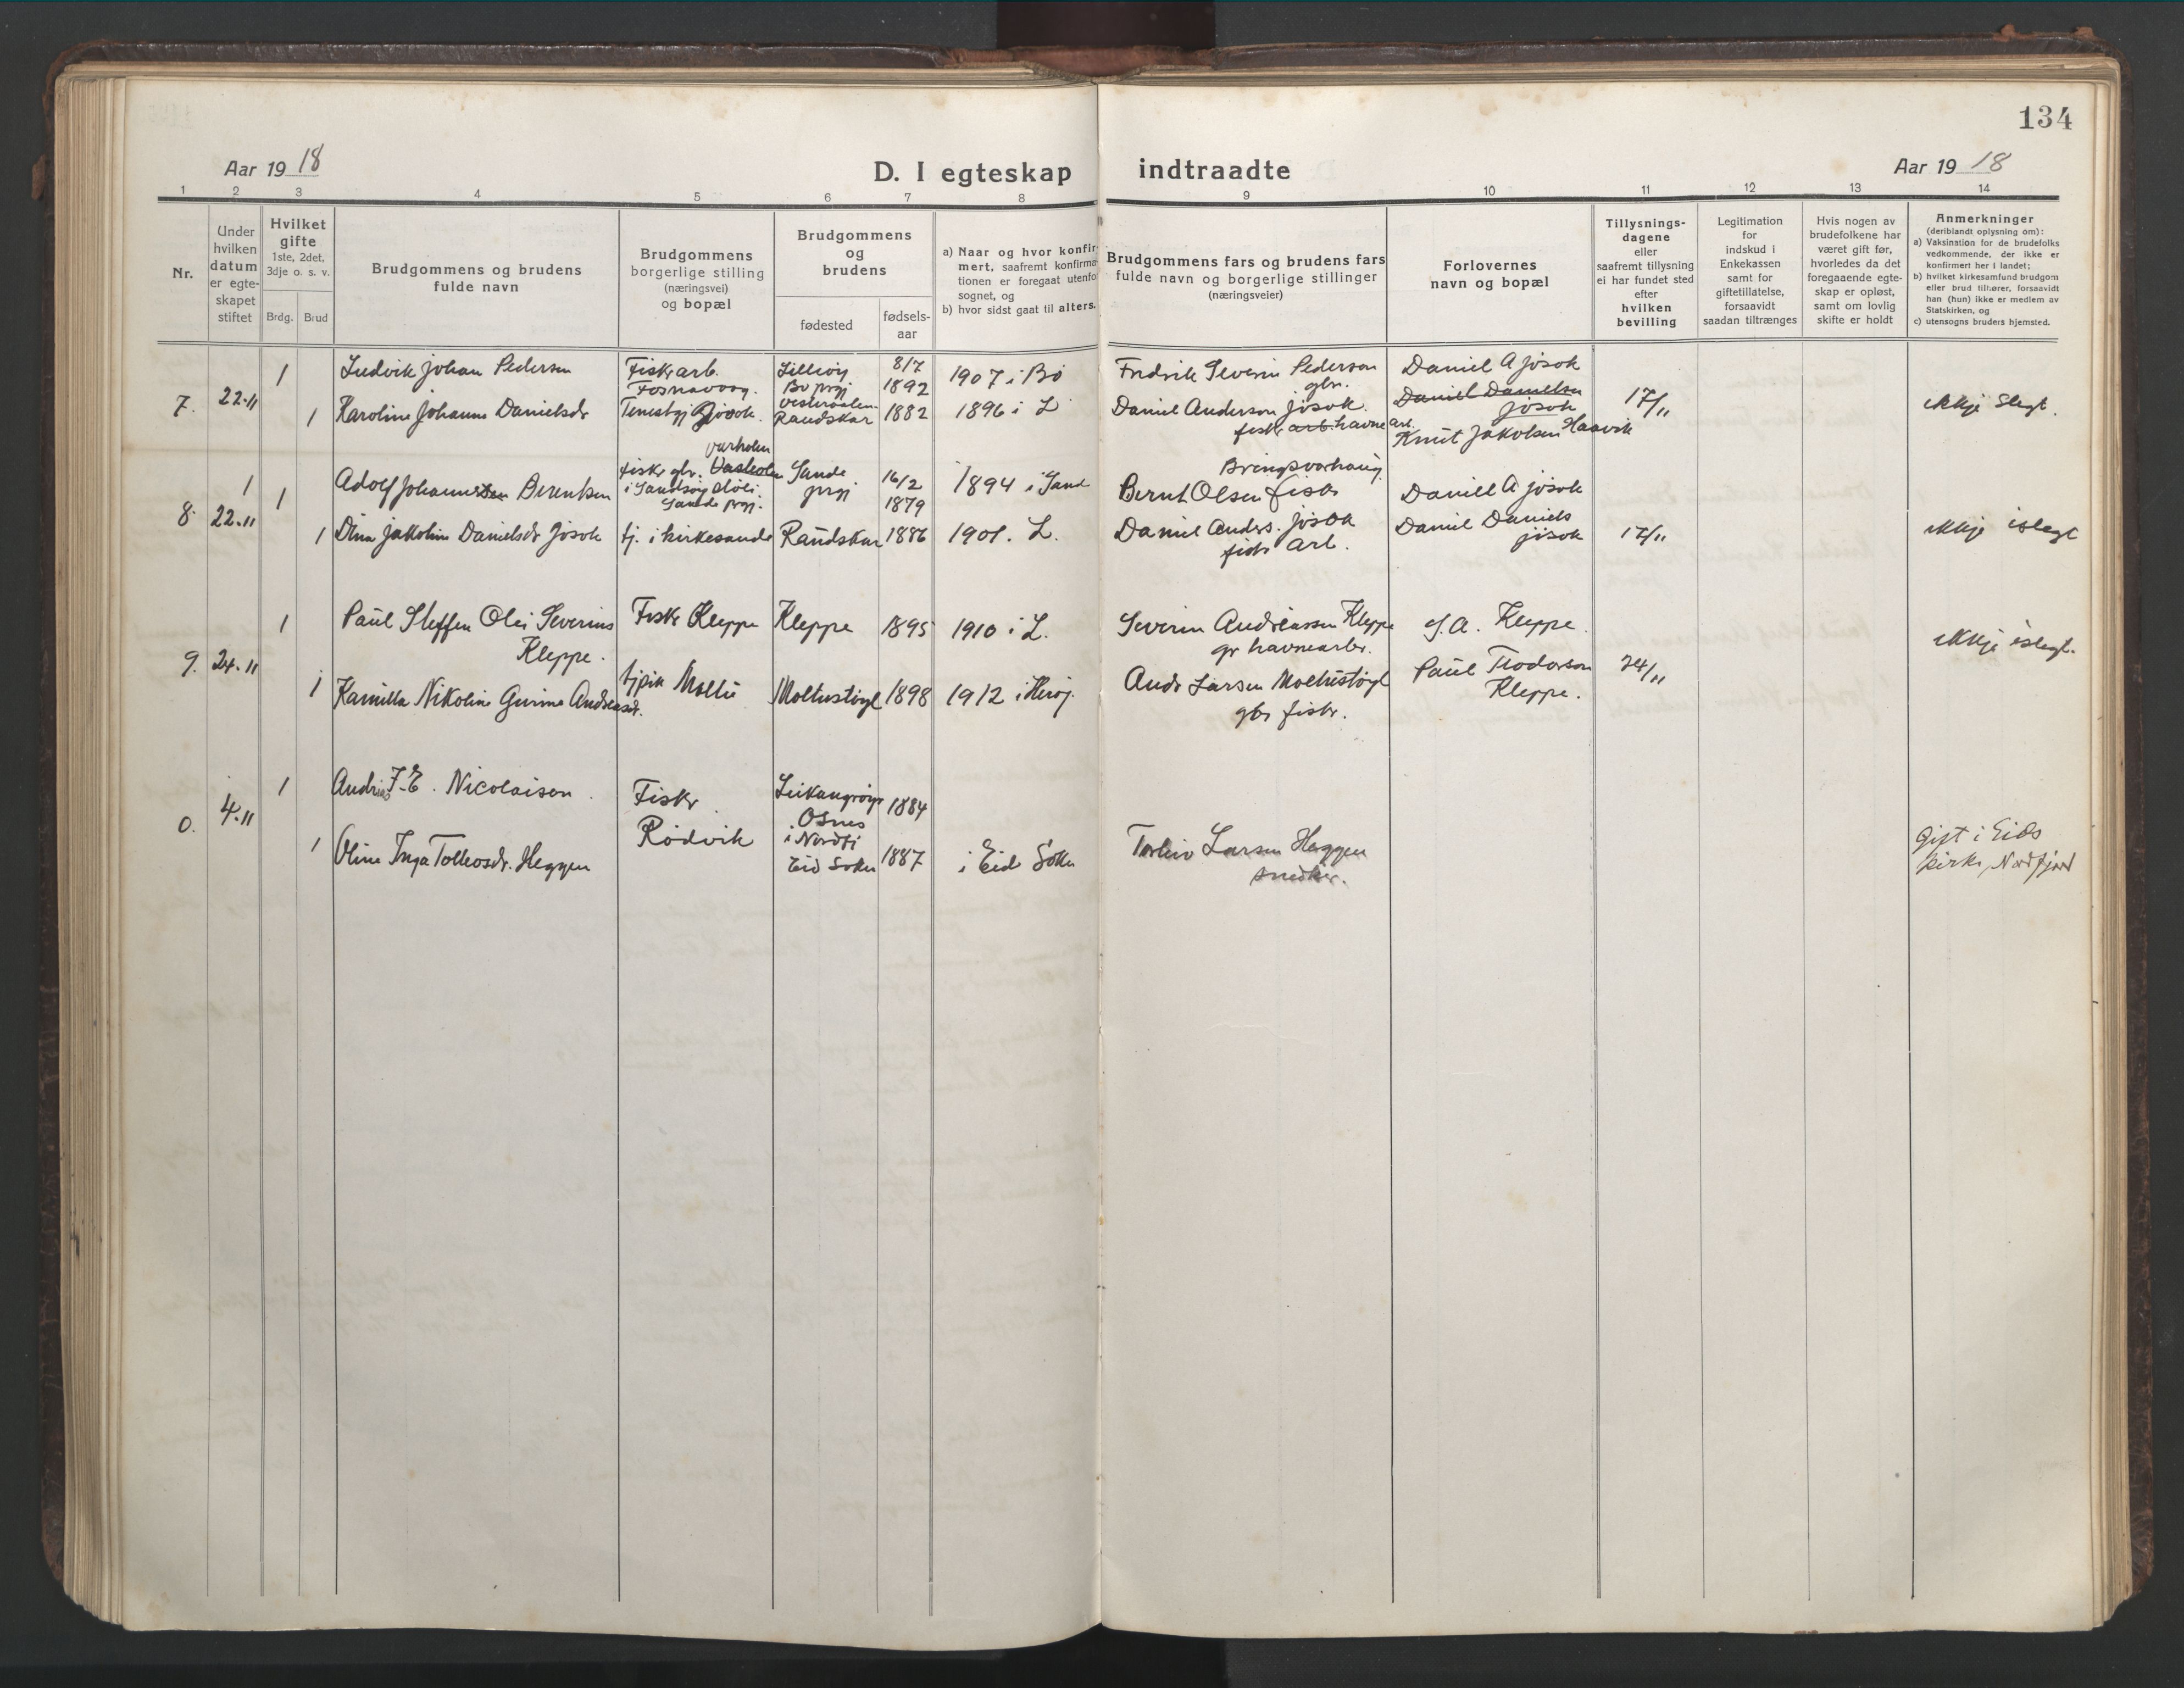 134
Aar 1918
D. I egteskap indtraadte
Aar 1918
1 2 3 4 5 6 7 8 9 10 11 12 13 14
Nr.
Under
hvilken
datum
er egte-
skapet
stiftet
Hvilket
gifte
1ste, 2det,
3dje o. s. v.
Brdg. Brud
Brudgommens og brudens
fulde navn
Brudgommens
borgerlige stilling
(næringsvei)
og bopæl
Brudgommens
og
brudens
fødested
fødsels-
aar
a) Naar og hvor konfir-
mert, saafremt konfirma-
tionen er foregaat utenfo
sognet, og
b) hvor sidst gaat til alters.
Brudgommens fars og brudens fars
fulde navn og borgerlige stillinger
(næringsveier)
Forlovernes
navn og bopæl
Tillysnings-
dagene
eller
saafremt tillysning
ei har fundet sted
efter
hvilken
bevilling
Legitimation
for
indskud i
Enkekassen
samt for
giftetillatelse,
forsaavidt
saadan tiltrænges
Hvis nogen av
brudefolkene har
været gift før,
hvorledes da det
foregaaende egte-
skap er opløst,
samt om lovlig
skifte er holdt
Anmerkninger
(deriblandt oplysning om):
a) Vaksination for de brudefolks
vedkommende, der ikke er
konfirmert her i landet;
b) hvilket kirkesamfund brudgom
eller brud tilhører, forsaavidt
han (hun) ikke er medlem av
Statskirken, og
c) utensogns bruders hjemsted.
7. 22.11
1
Ludvik Johan Pedersen
Fiskarb.
Fosnavaag.
Lilleøy
Bø prgj
Vesteraalen
8/7
1892
1907 i Bø
Fredrik Severin Pederson
gbr.
Daniel A Jøsok
Daniel Danielsen
Jøsok
17/11
ikkje Slegt.
1
Karoline Johanne Danielsdr
Tenestgj Jøsok.
Randskar
1882
1896 i L
Daniel Anderson Jøsok.
fiskr arb. havnearb.
Knut Jakobsen Haavik
8. 22.11
1
1
Adolf Johannes Berentsen
Varholm
fiskr gbr.
i Sandsøy
Sande prgj.
Sande
prgj
16/2
1879
1894 i Sand
Bringsvorhaug
Bernt Olsen fiskr
Daniel A Jøsok
1
Dina Jakobine Danielsdr Jøsok
tj. i kirkesande
Randskar
1886
1901. L.
Daniel Anders. Jøsok
fiskr arb.
Daniel Daniels
Jøsok
17/11
ikkje islegt
9. 24.11
1
Paul Steffen Olai Severins
Kleppe.
Fiskr Kleppe
Kleppe
1895
1910 i L.
Severin Andreassen Kleppe
gr havnearbr.
S. A. Kleppe.
ikkje islegt.
1
Kamilla Nikoline Gurine Andreasdr.
tjpik Moltu
Moltustøyl
1898
1912 i Herøy.
Andr Larsen Moltustøyl
gbr fiskr.
Paul Teodorson
Kleppe.
24/11
0. 4.11
1
Andrias J. E. Nicolaisen.
Fiskr
Rødvik
Leikangrøys
Osnes
1884
1
Oline Inga Tolleosdr. Heggen
i Nordfj
Eid Sokn
1887
i Eid Sokn
Torleiv Larsen Heggen
snedker.
Gift i Eids
kirke, Nordfjord